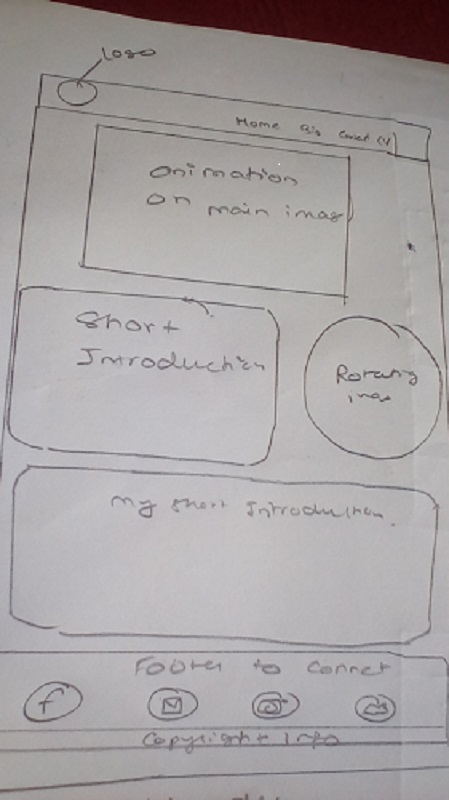 Logo
Home Bio
animation
on main imag
Short
Introduction
Rotating
imag
my short Introduction.
Footer to connet
f
Copyright Info